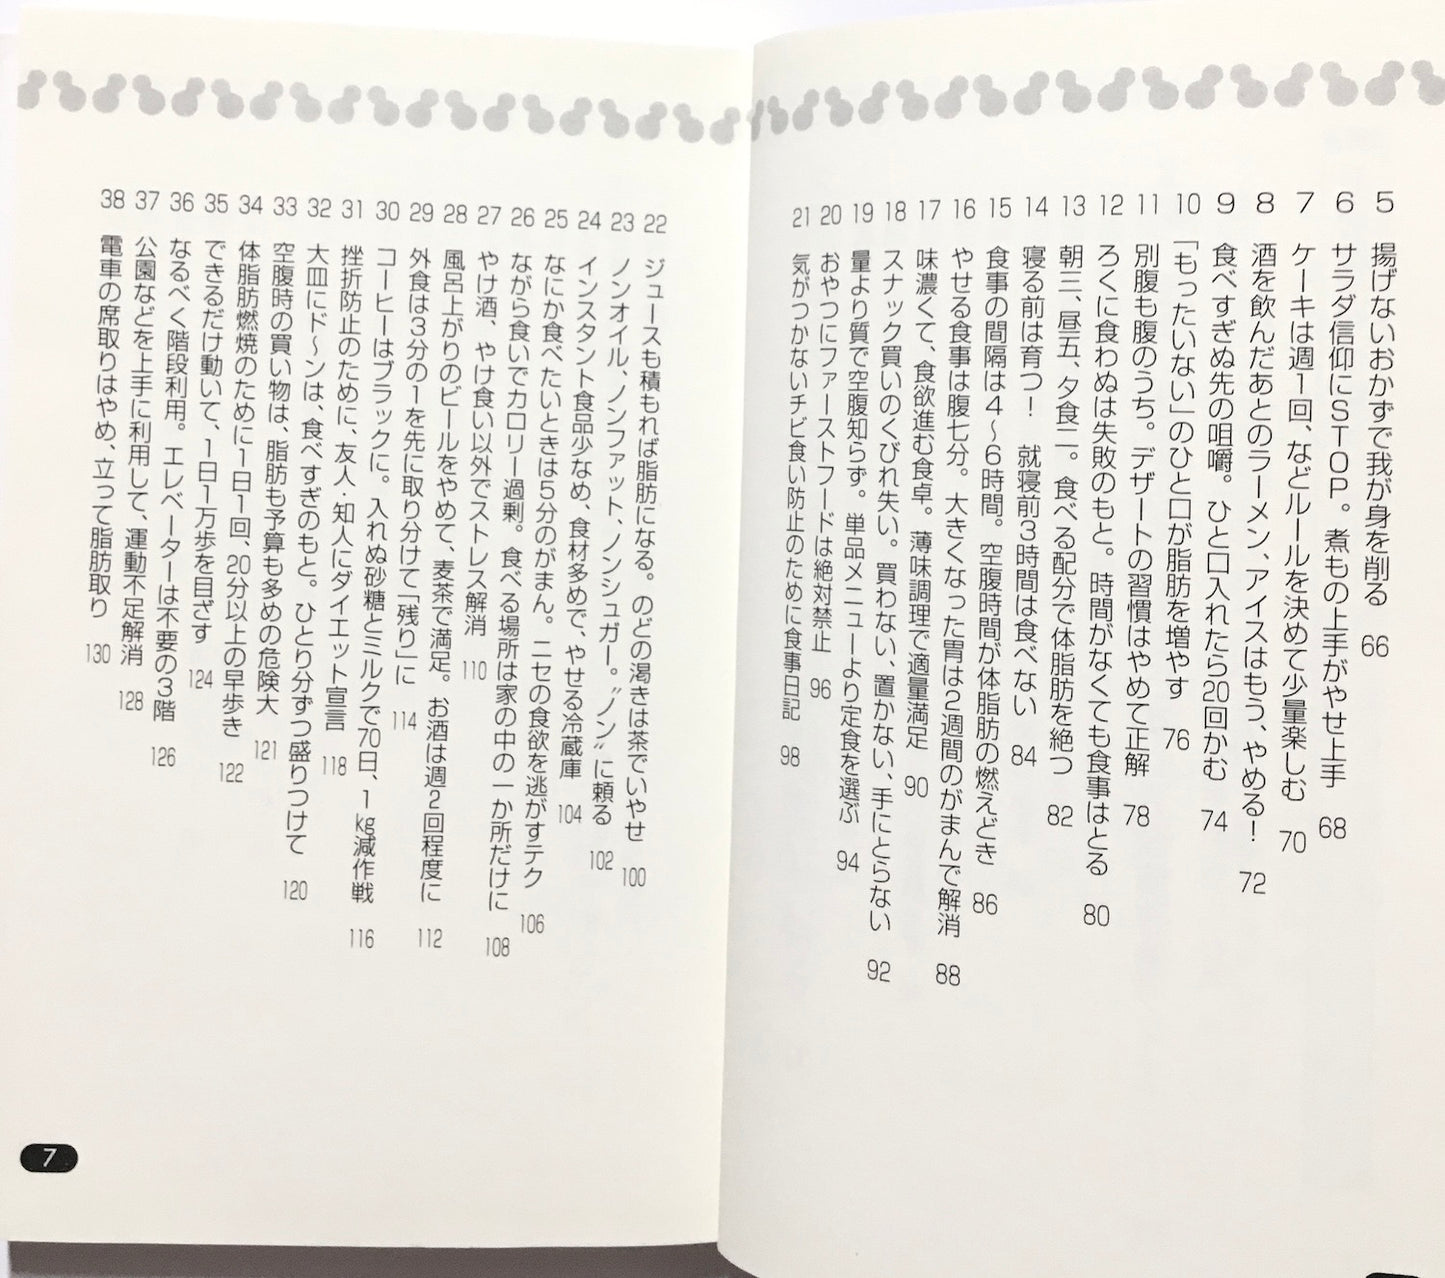 5 揚げないおかずで我が身を削る 66
6 サラダ信仰にSTOP。煮もの上手がやせ上手 68
7 ケーキは週1回、などルールを決めて少量楽しむ 70
8 酒を飲んだあとのラーメン、アイスはもう、やめる! 72
9 食べすぎぬ先の咀嚼。ひと口入れたら20回かむ 74
10 「もったいない」のひと口が脂肪を増やす 76
11 別腹も腹のうち。デザートの習慣はやめて正解 78
12 ろくに食わぬは失敗のもと。時間がなくても食事はとる 80
13 朝三、昼五、夕食二。食べる配分で体脂肪を絶つ 82
14 寝る前は育つ! 就寝前3時間は食べない 84
15 食事の間隔は4〜6時間。空腹時間が体脂肪の燃えどき 86
16 やせる食事は腹七分。大きくなった胃は2週間のがまんで解消 88
17 味濃くて、食欲進む食卓。薄味調理で適量満足 90
18 スナック買いのくびれ失い。買わない、置かない、手にとらない 92
19 量より質で空腹知らず。単品メニューより定食を選ぶ 94
20 おやつにファーストフードは絶対禁止 96
21 気がつかないチビ食い防止のために食事日記 98
22 ジュースも積もれば脂肪になる。のどの渇きは茶でいやせ 100
23 ノンオイル、ノンファット、ノンシュガー。〝ノン〟に頼る 102
24 インスタント食品少なめ、食材多めで、やせる冷蔵庫 104
25 なにか食べたいときは5分のがまん。ニセの食欲を逃がすテク 106
26 ながら食いでカロリー過剰。食べる場所は家の中の一か所だけに 108
27 やけ酒、やけ食い以外でストレス解消 110
28 風呂上がりのビールをやめて、麦茶で満足。お酒は週2回程度に 112
29 外食は3分の1を先に取り分けて「残り」に 114
30 コーヒーはブラックに。入れぬ砂糖とミルクで70日、1kg減作戦 116
31 挫折防止のために、友人・知人にダイエット宣言 118
32 大皿にド〜ンは、食べすぎのもと。ひとり分ずつ盛りつけて 120
33 空腹時の買い物は、脂肪も予算も多めの危険大 121
34 体脂肪燃焼のために1日1回、20分以上の早歩き 122
35 できるだけ動いて、1日1万歩を目ざす 124
36 なるべく階段利用。エレベーターは不要の3階 126
37 公園などを上手に利用して、運動不足解消 128
38 電車の席取りはやめ、立って脂肪取り 130
7